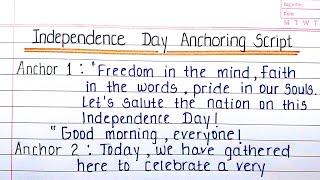 Independence Day Anchoring Script
Anchor 1 : "Freedom in the mind, faith
in the words, pride in our souls.
Let's salute the nation on this
Independence Day!
"Good morning, everyone!
Anchor 2 : Today, we have gathered
here to celebrate a very
M T W T